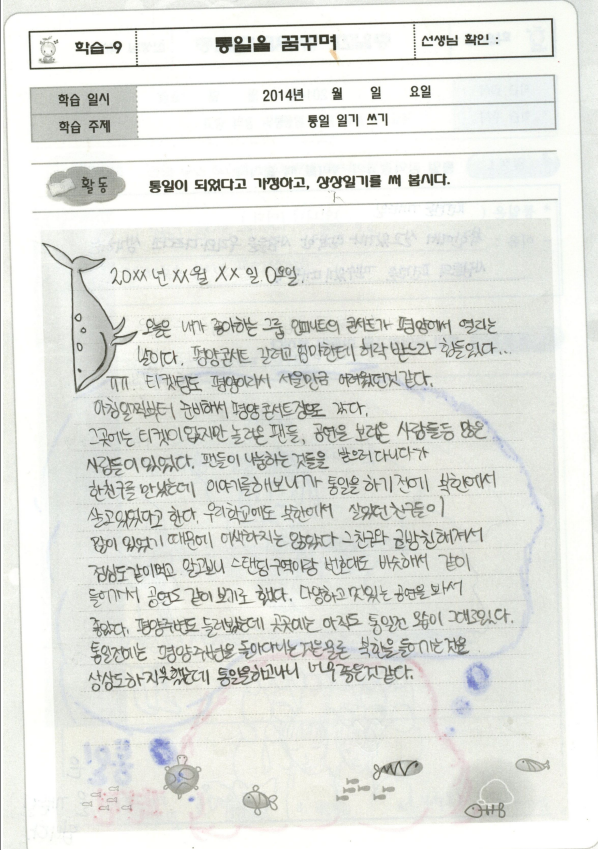 학습-9
통일을 꿈꾸며
선생님 확인 :
학습 일시
2014년 월 일 요일
학습 주제
통일 일기 쓰기
활동
통일이 되었다고 가정하고, 상상일기를 써 봅시다.
20XX년 XX월 XX일 O요일.
오늘은 내가 좋아하는 그룹 인피니트의 콘서트가 평양에서 열리는
날이다. 평양콘서트 간다고 엄마한테 허락 받느라 힘들었다...
ㅠㅠ. 티켓팅도 평양이라서 서울만큼 어려웠던것 같다.
아침일찍부터 준비해서 평양 콘서트장으로 갔다.
그곳에는 티켓이 없지만 놀러온 팬들, 공연을 보러온 사람들등 많은
사람들이 있었다. 팬들이 나눔하는 것들을 받으러 다니다가
한친구를 만났는데 이야기를 해보니까 통일을 하기 전에 북한에서
살고있었다고 한다. 우리학교에도 북한에서 살았던 친구들이
많이 있었기 때문에 어색하지는 않았다 그친구와 금방 친해져서
점심도 같이먹고 알고보니 스탠딩구역이랑 번호대도 비슷해서 같이
들어가서 공연도 같이 보기로 했다. 다양하고 멋있는 공연을 봐서
좋았다. 평양주변도 둘러봤는데 곳곳에는 아직도 통일전 모습이 그대로있다.
통일전에는 평양주변을 돌아다니는 북한을 들어가는것을
상상도하지못했는데 통일을하고나니 너무 좋은것같다.